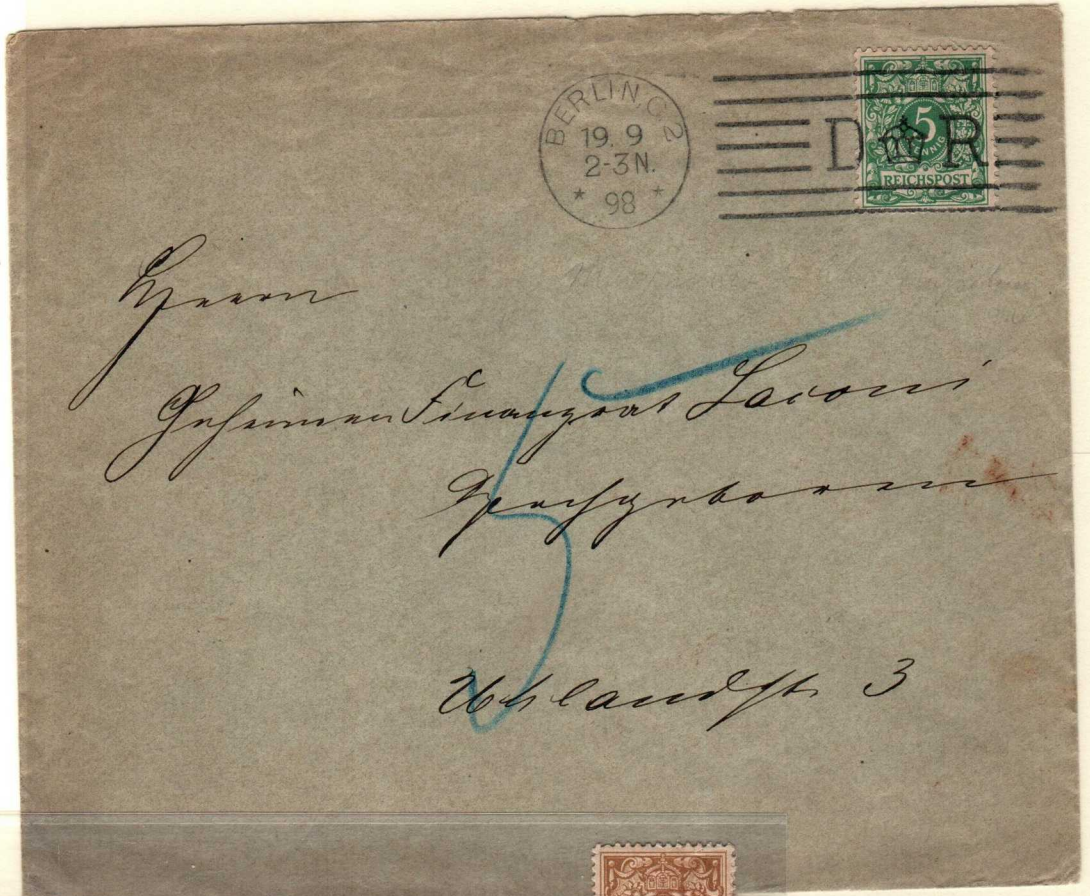 BERLIN.C2
19. 9
2-3 N.
* 98 *
D R
5
PFENNIG
REICHSPOST
Herrn
Geheimen Finanzrat Laconi
Hochgeboren
5
Uhlandst. 3